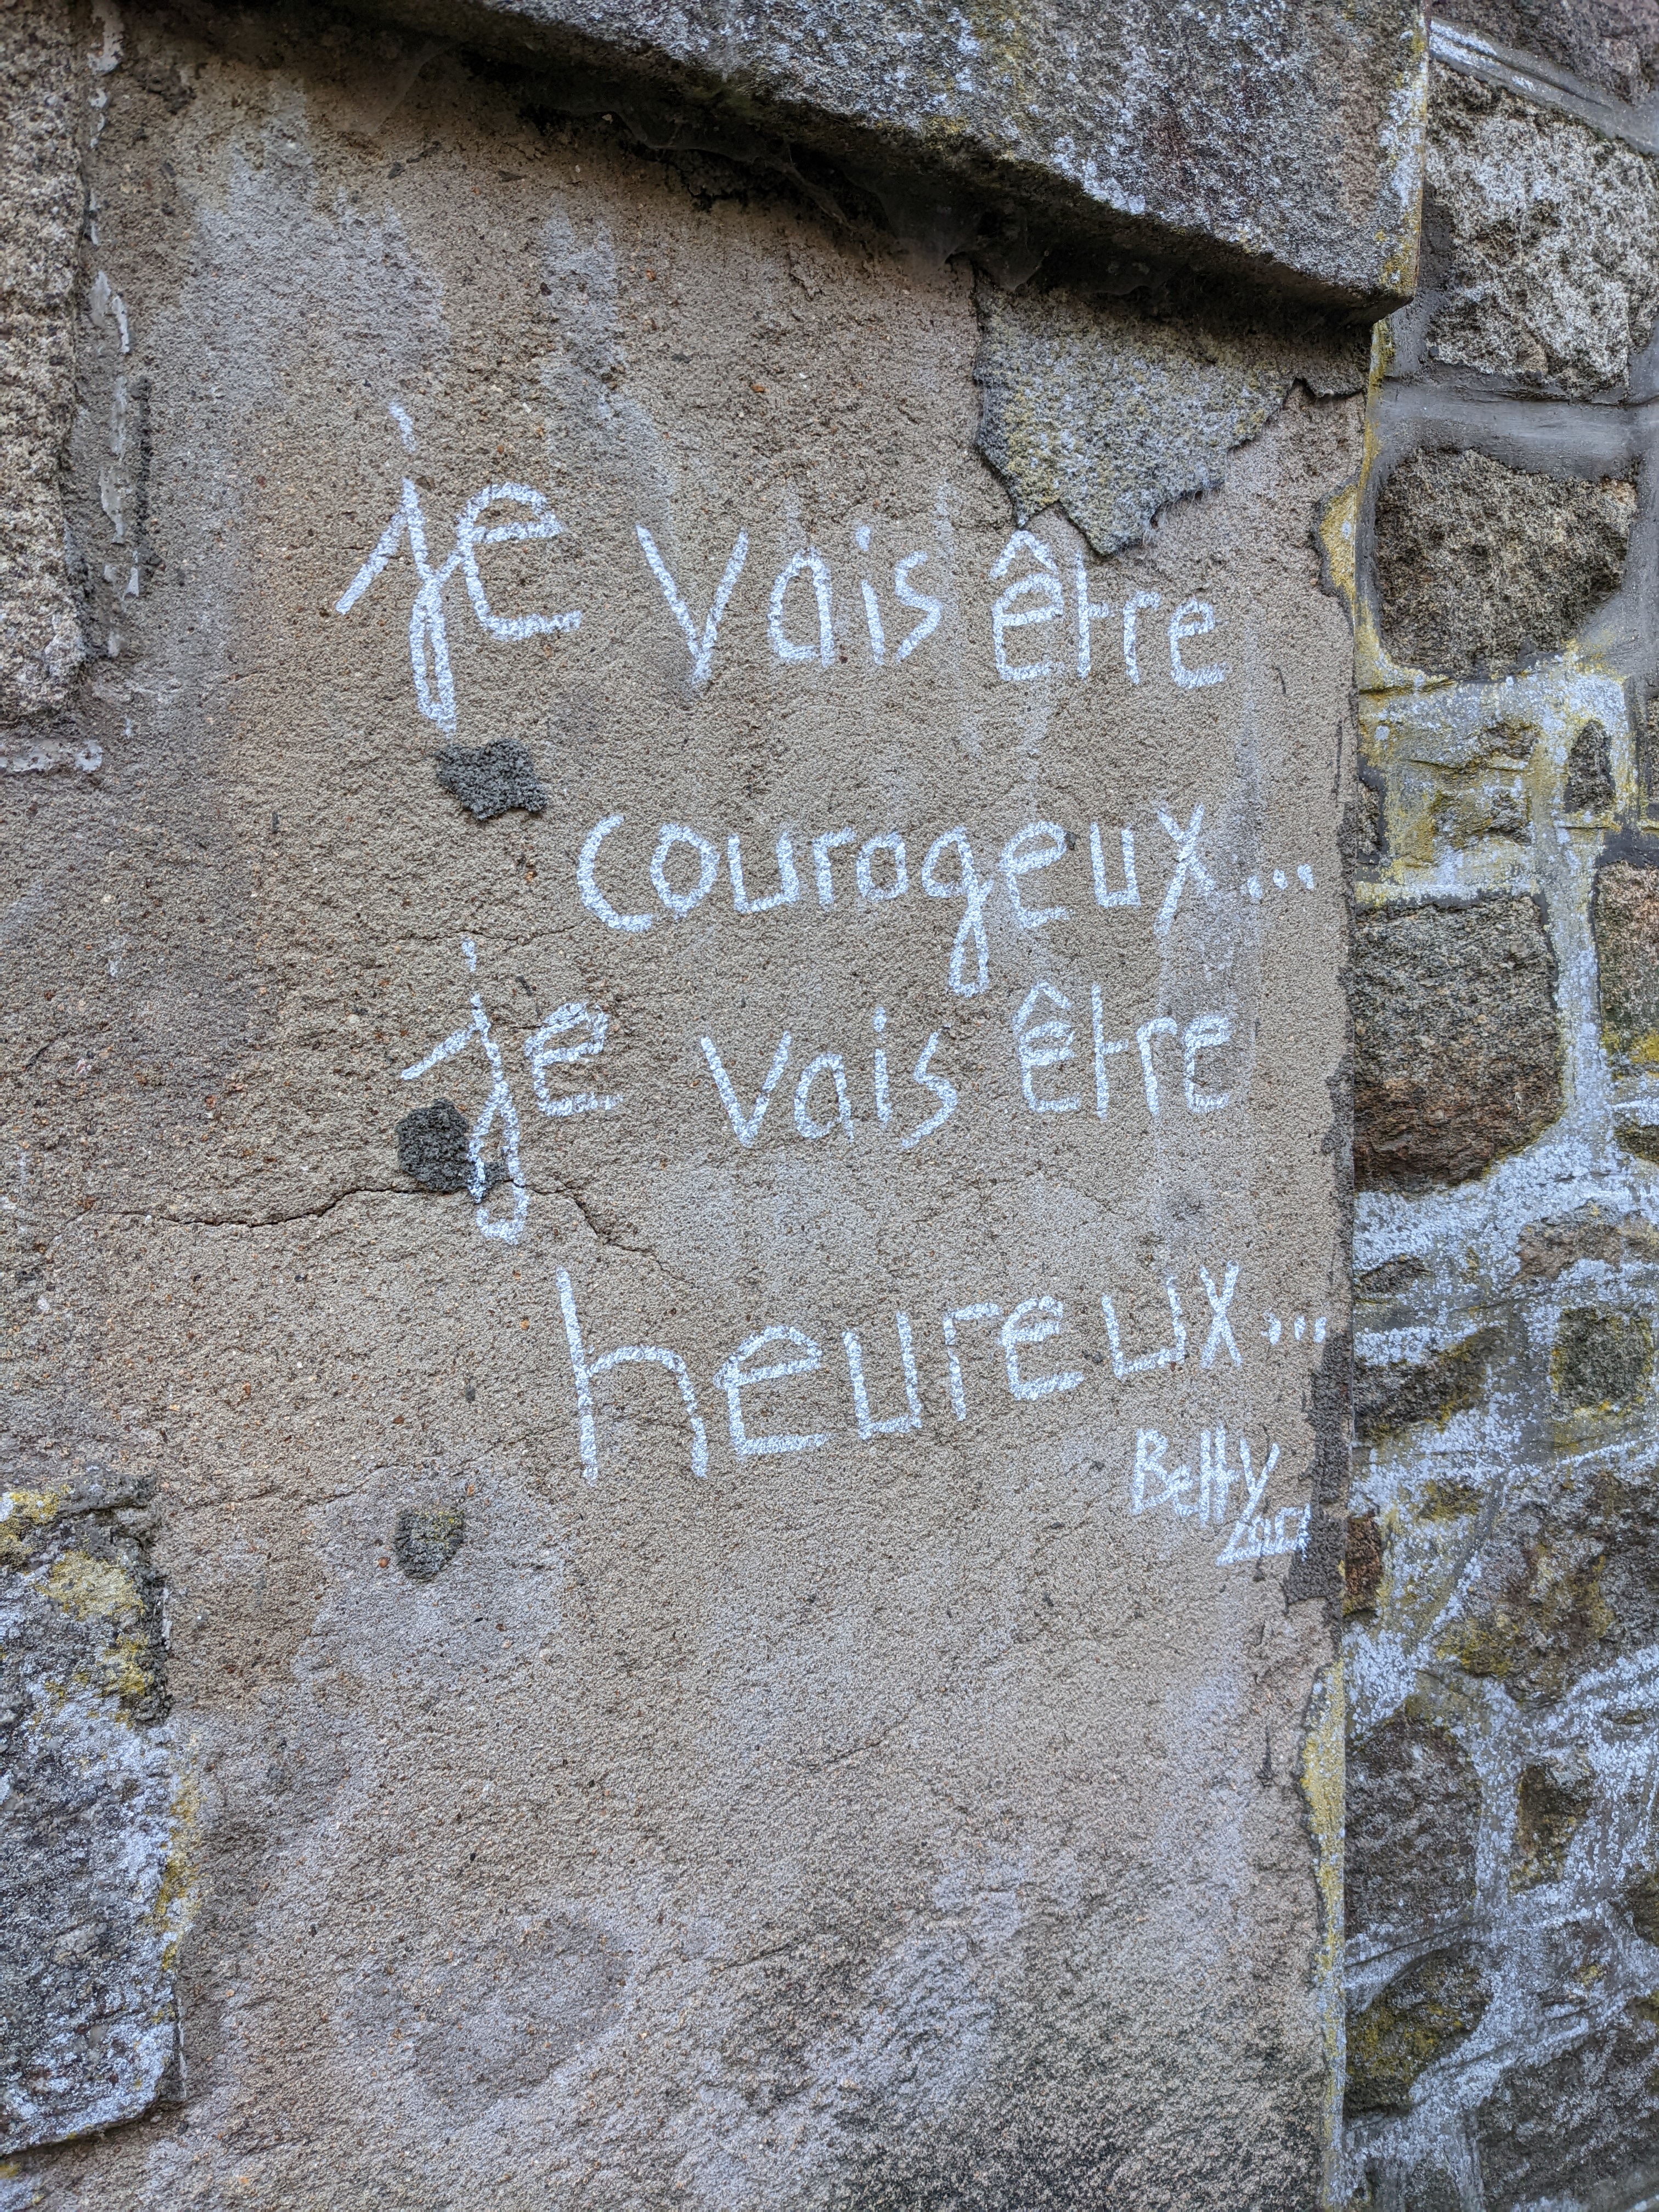 je vais être
courageux...
je vais être
heureux...
Betty